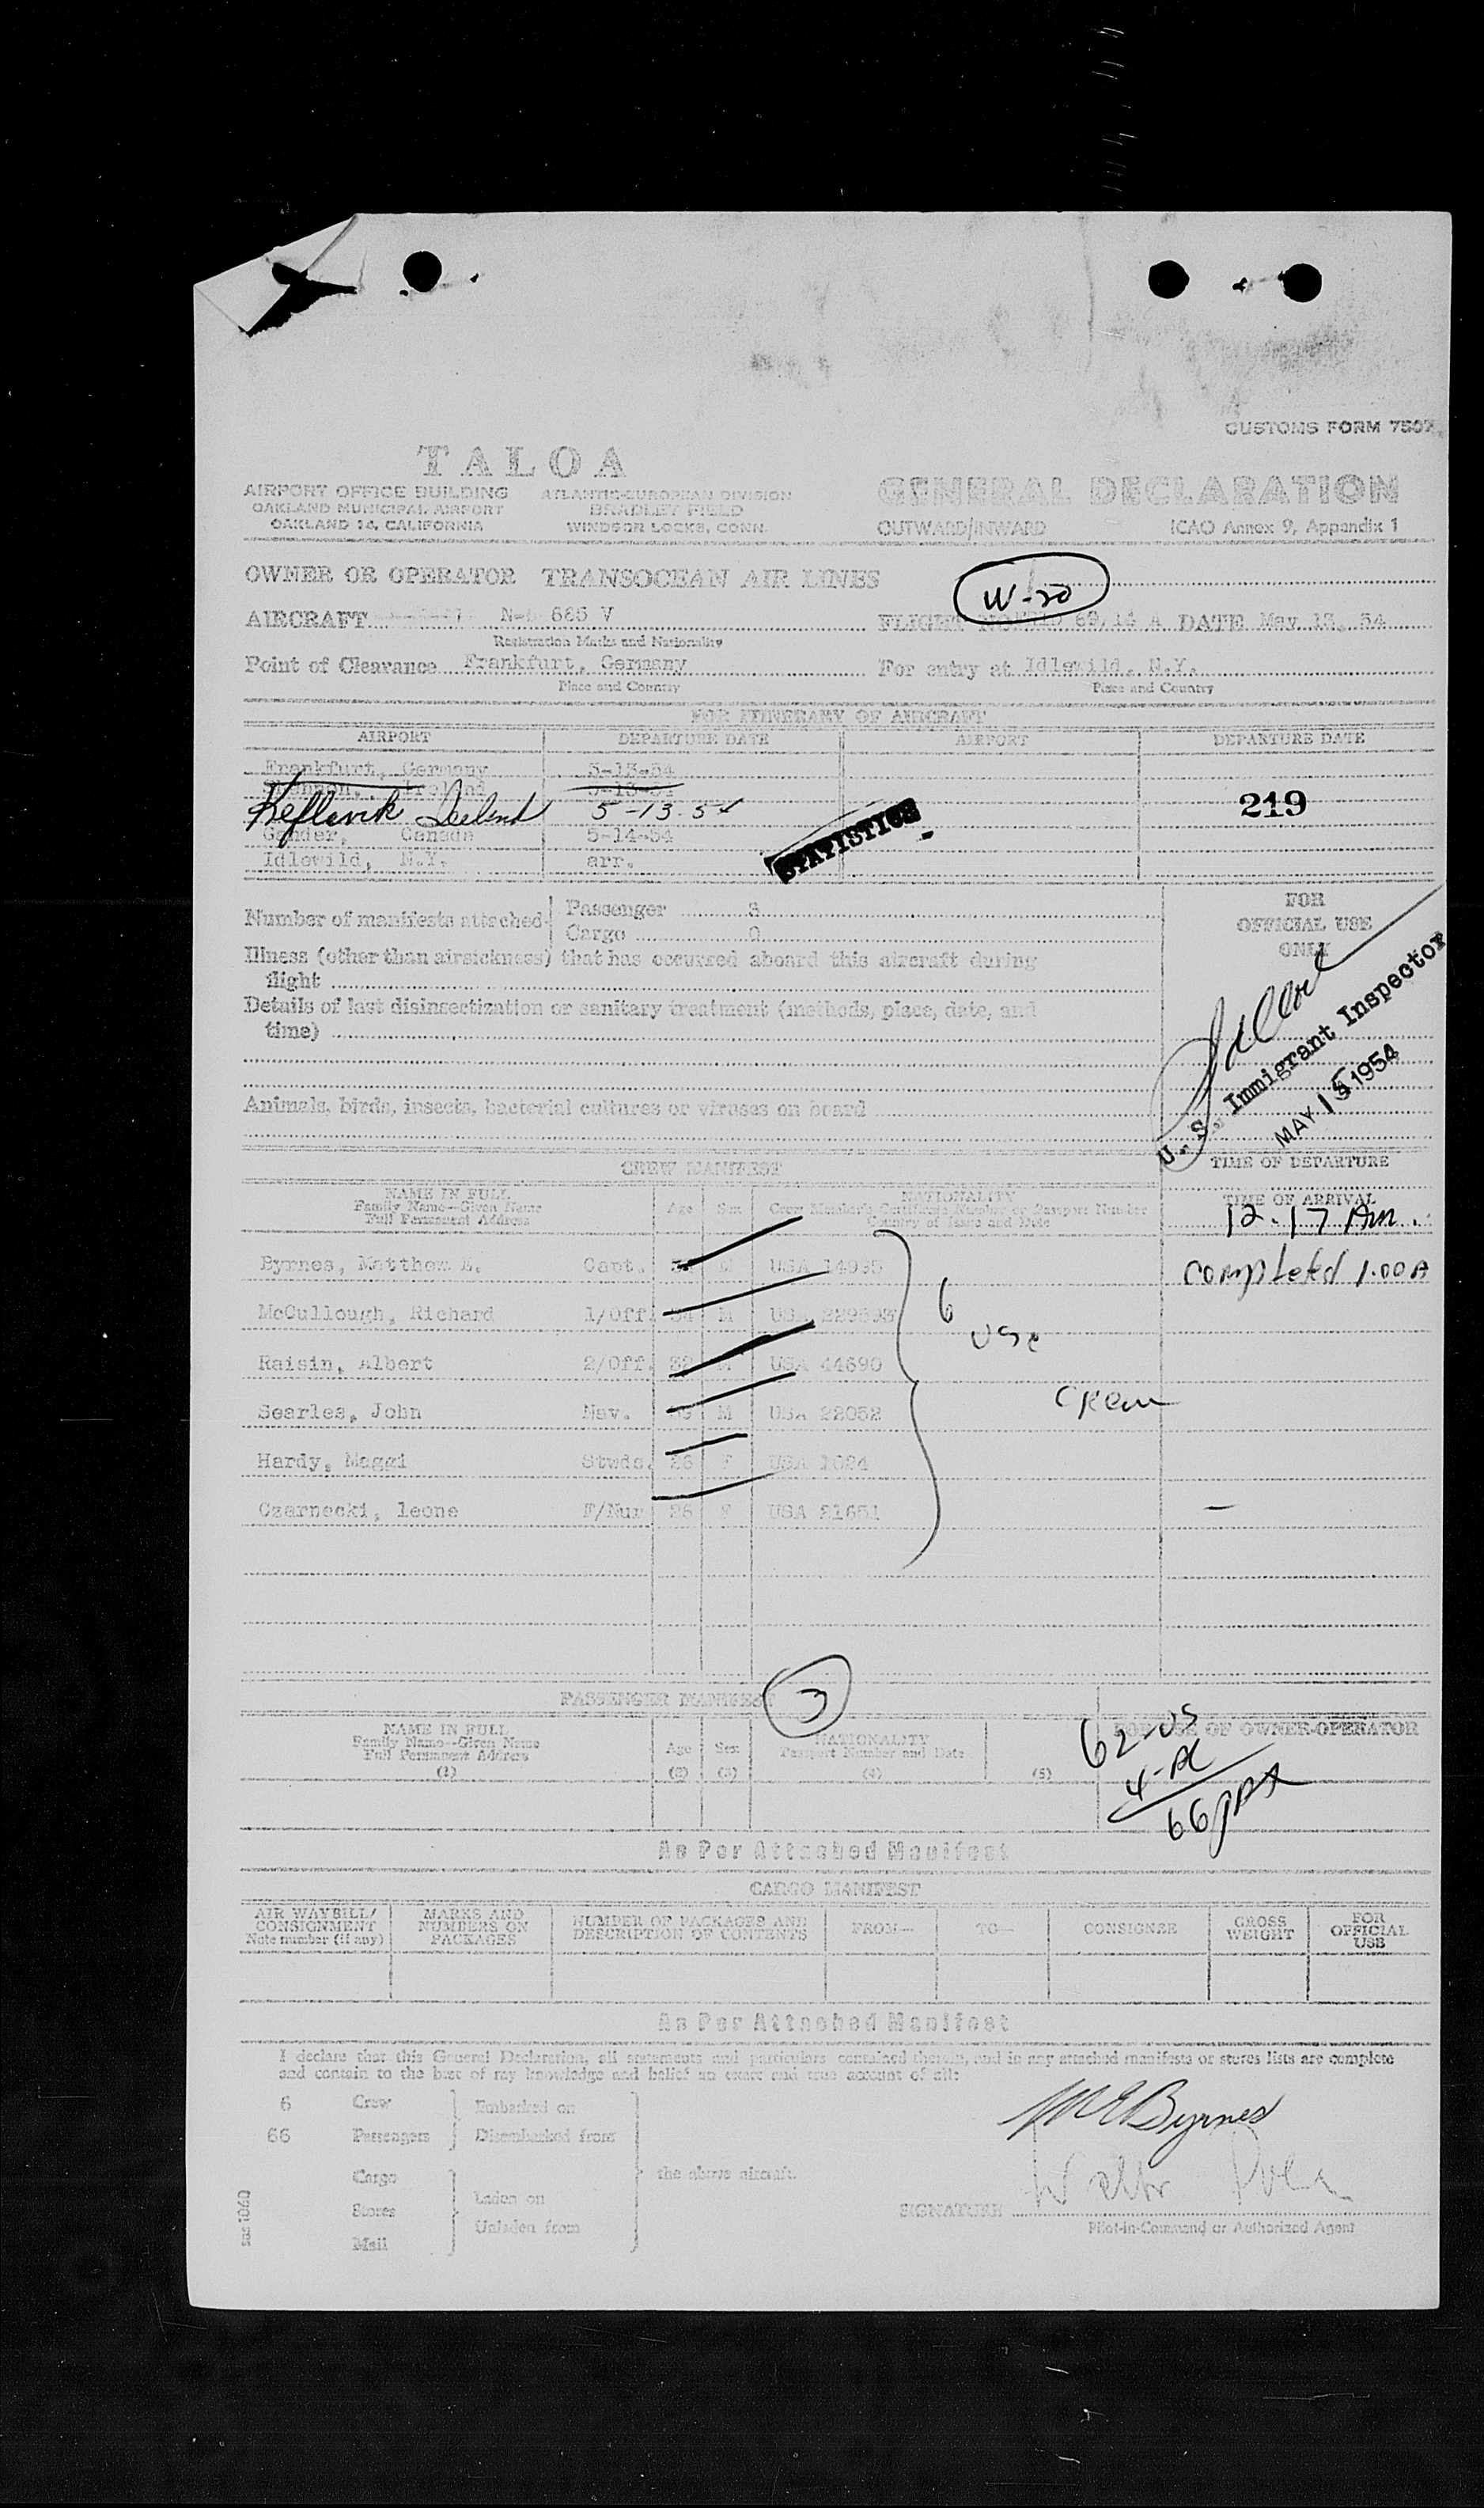 CUSTOMS FORM 7507
TALOA
AIRPORT OFFICE BUILDING
OAKLAND MUNICIPAL AIRPORT
OAKLAND 14, CALIFORNIA
ATLANTIC-EUROPEAN DIVISION
BRADLEY FIELD
WINDSOR LOCKS, CONN.
GENERAL DECLARATION
OUTWARD/INWARD ICAO Annex 9, Appendix 1
OWNER OR OPERATOR TRANSOCEAN AIR LINES
W-20
AIRCRAFT 665 V FLIGHT NO. A DATE May 54
Registration Marks and Nationality
Point of Clearance Frankfurt, Germany For entry at Idlewild, N.Y.
Place and Country Place and Country
FOR ITINERARY OF AIRCRAFT
AIRPORT DEPARTURE DATE AIRPORT DEPARTURE DATE
Frankfurt, Germany 5-13-54
Shannon, Ireland 5-13-54
Keflavik Iceland 5-13-54
219
Gander, Canada 5-14-54
Idlewild, N.Y. arr.
STATISTICS
Number of manifests attached
Passenger 3
Cargo 0
FOR
OFFICIAL USE
ONLY
Illness (other than airsickness) that has occurred aboard this aircraft during
flight
Details of last disinsectization or sanitary treatment (methods, place, date, and
time)
U. S. Immigrant Inspector
MAY 15 1954
Animals, birds, insects, bacterial cultures or viruses on board
CREW MANIFEST
TIME OF DEPARTURE
NAME IN FULL
Family Name—Given Name
Full Permanent Address
Age Sex
NATIONALITY
Crew Member's Certificate Number or Passport Number
Country of Issue and Date
TIME OF ARRIVAL
12.17 Am.
completed 1.00A
Byrnes, Matthew E. Capt. M USA 14935
McCullough, Richard 1/Off. 34 M USA
Raisin, Albert 2/Off. 32 M USA 44690
Searles, John Nav. M USA 22052
Hardy, Maggi Stwds. 26 F USA 1084
Czarnecki, leone F/Nur 26 F USA 21651
6
USC
Crew
PASSENGER MANIFEST
3
NAME IN FULL
Family Name—Given Name
Full Permanent Address
(1)
Age
(2)
Sex
(3)
NATIONALITY
Passport Number and Date
(4)
(5)
FOR USE OF OWNER-OPERATOR
62-US
4-A
66 pax
As Per Attached Manifest
CARGO MANIFEST
AIR WAYBILL/
CONSIGNMENT
Note number (if any)
MARKS AND
NUMBERS ON
PACKAGES
NUMBER OF PACKAGES AND
DESCRIPTION OF CONTENTS
FROM— TO— CONSIGNEE
GROSS
WEIGHT
FOR
OFFICIAL
USE
As Per Attached Manifest
I declare that this General Declaration, all statements and particulars contained therein, and in any attached manifests or stores lists are complete
and contain to the best of my knowledge and belief an exact and true account of all:
6 Crew Embarked on
66 Passengers Disembarked from
Cargo
the above aircraft.
Stores
Laden on
Unladen from
Mail
M E Byrnes
Walter
SIGNATURE
Pilot-in-Command or Authorized Agent